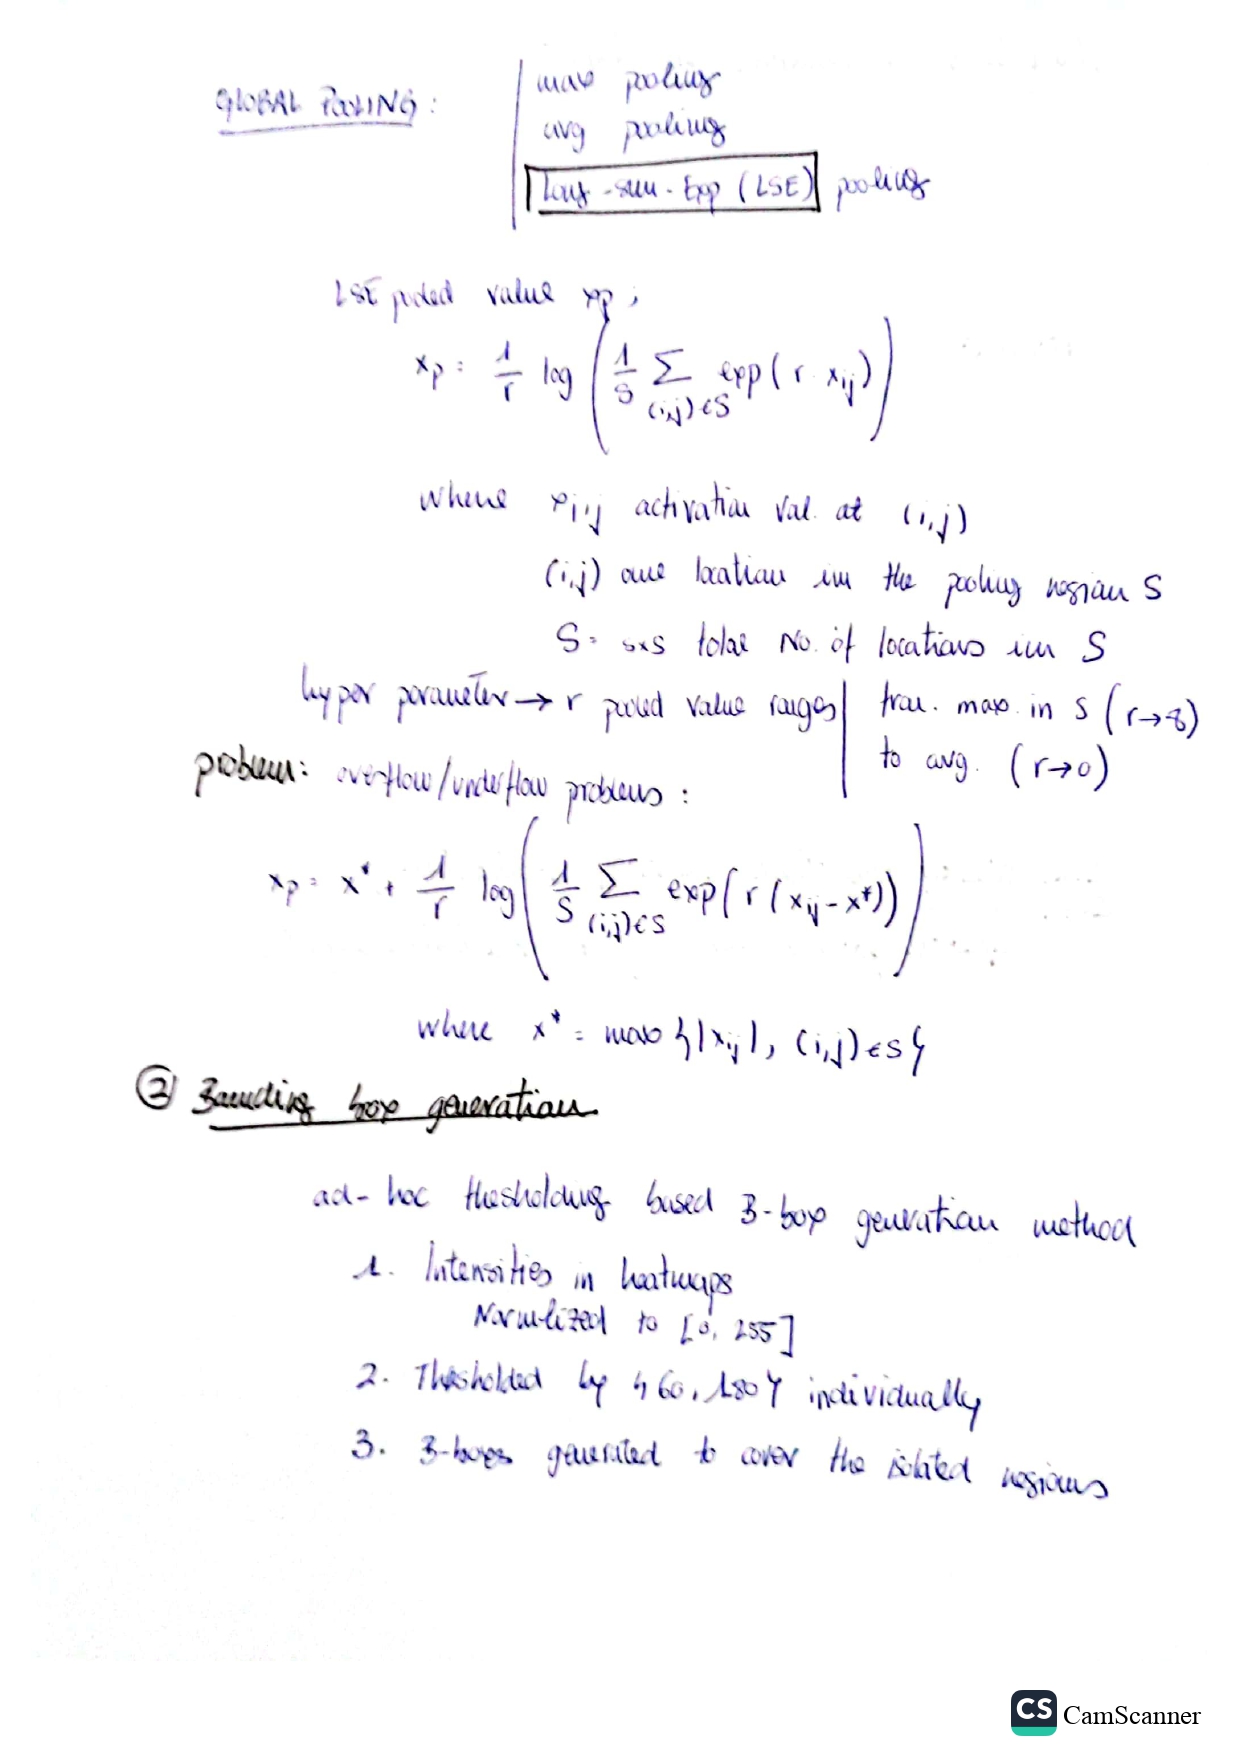 GLOBAL POOLING:
max pooling
avg pooling
Log-sum-Exp (LSE) pooling
LSE pooled value xp,
xp = 1/r log ( 1/S Σ (i,j)∈S exp(r · xij) )
where xi,j activation val. at (i,j)
(i,j) one location in the pooling region S
S = s×s total No. of locations in S
hyper parameter → r pooled value ranges | from. max. in S (r→∞)
to avg. (r→0)
problem: overflow/underflow problems:
xp = x* + 1/r log ( 1/S Σ (i,j)∈S exp(r (xij - x*)) )
where x* = max {|xij|, (i,j)∈S}
② Bounding box generation
ad-hoc thesholding based B-box generation method
1. Intensities in heatmaps
Normlized to [0, 255]
2. Thesholded by {60, 180} individually
3. B-boxes generated to cover the isolated regions
CS CamScanner